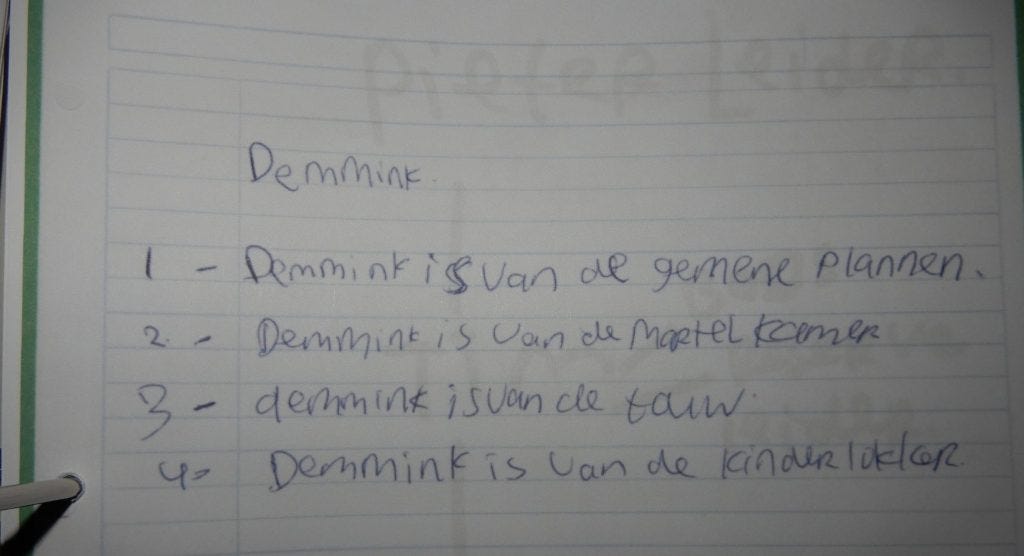 Demmink.
1 - Demmink is van de gemene plannen.
2. - Demmink is van de Martel kamer
3 - demmink is van de touw.
4= Demmink is van de kinderlokker.